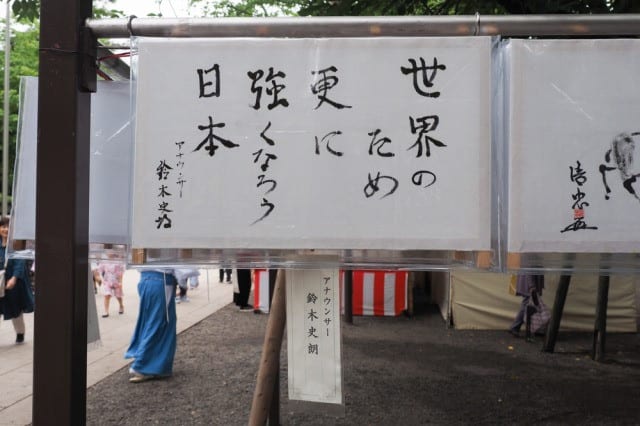 世界の
ため
更に
強くなろう
日本
アナウンサー
鈴木史朗
アナウンサー
鈴木史朗